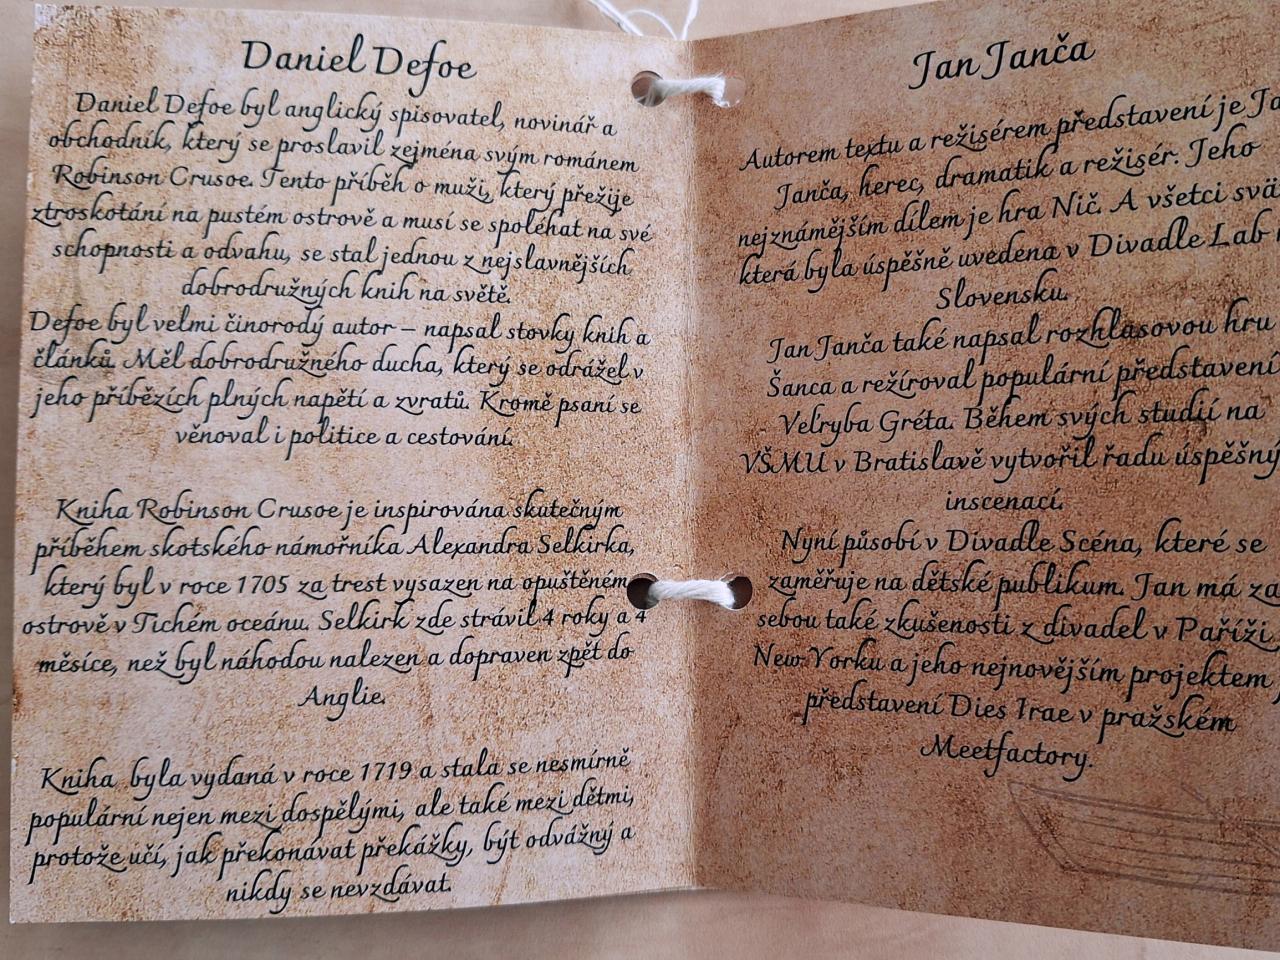 Daniel Defoe
Daniel Defoe byl anglický spisovatel, novinář a
obchodník, který se proslavil zejména svým románem
Robinson Crusoe. Tento příběh o muži, který přežije
ztroskotání na pustém ostrově a musí se spoléhat na své
schopnosti a odvahu, se stal jednou z nejslavnějších
dobrodružných knih na světě.
Defoe byl velmi činorodý autor – napsal stovky knih a
článků. Měl dobrodružného ducha, který se odrážel v
jeho příbězích plných napětí a zvratů. Kromě psaní se
věnoval i politice a cestování.
Kniha Robinson Crusoe je inspirována skutečným
příběhem skotského námořníka Alexandra Selkirka,
který byl v roce 1705 za trest vysazen na opuštěném
ostrově v Tichém oceánu. Selkirk zde strávil 4 roky a 4
měsíce, než byl náhodou nalezen a dopraven zpět do
Anglie.
Kniha byla vydaná v roce 1719 a stala se nesmírně
populární nejen mezi dospělými, ale také mezi dětmi,
protože učí, jak překonávat překážky, být odvážný a
nikdy se nevzdávat.
Jan Janča
Autorem textu a režisérem představení je
Janča, herec, dramatik a režisér. Jeho
nejznámějším dílem je hra Nič. A všetci
která byla úspěšně uvedena v Divadle Lab
Slovensku.
Jan Janča také napsal rozhlasovou hru
Šanca a režíroval populární představení
Veľryba Gréta. Během svých studií na
VŠMU v Bratislavě vytvořil řadu
inscenací.
Nyní působí v Divadle Scéna, které se
zaměřuje na dětské publikum. Jan má za
sebou také zkušenosti z divadel v Paříži,
New Yorku a jeho nejnovějším projektem
představení Dies Irae v pražském
Meetfactory.